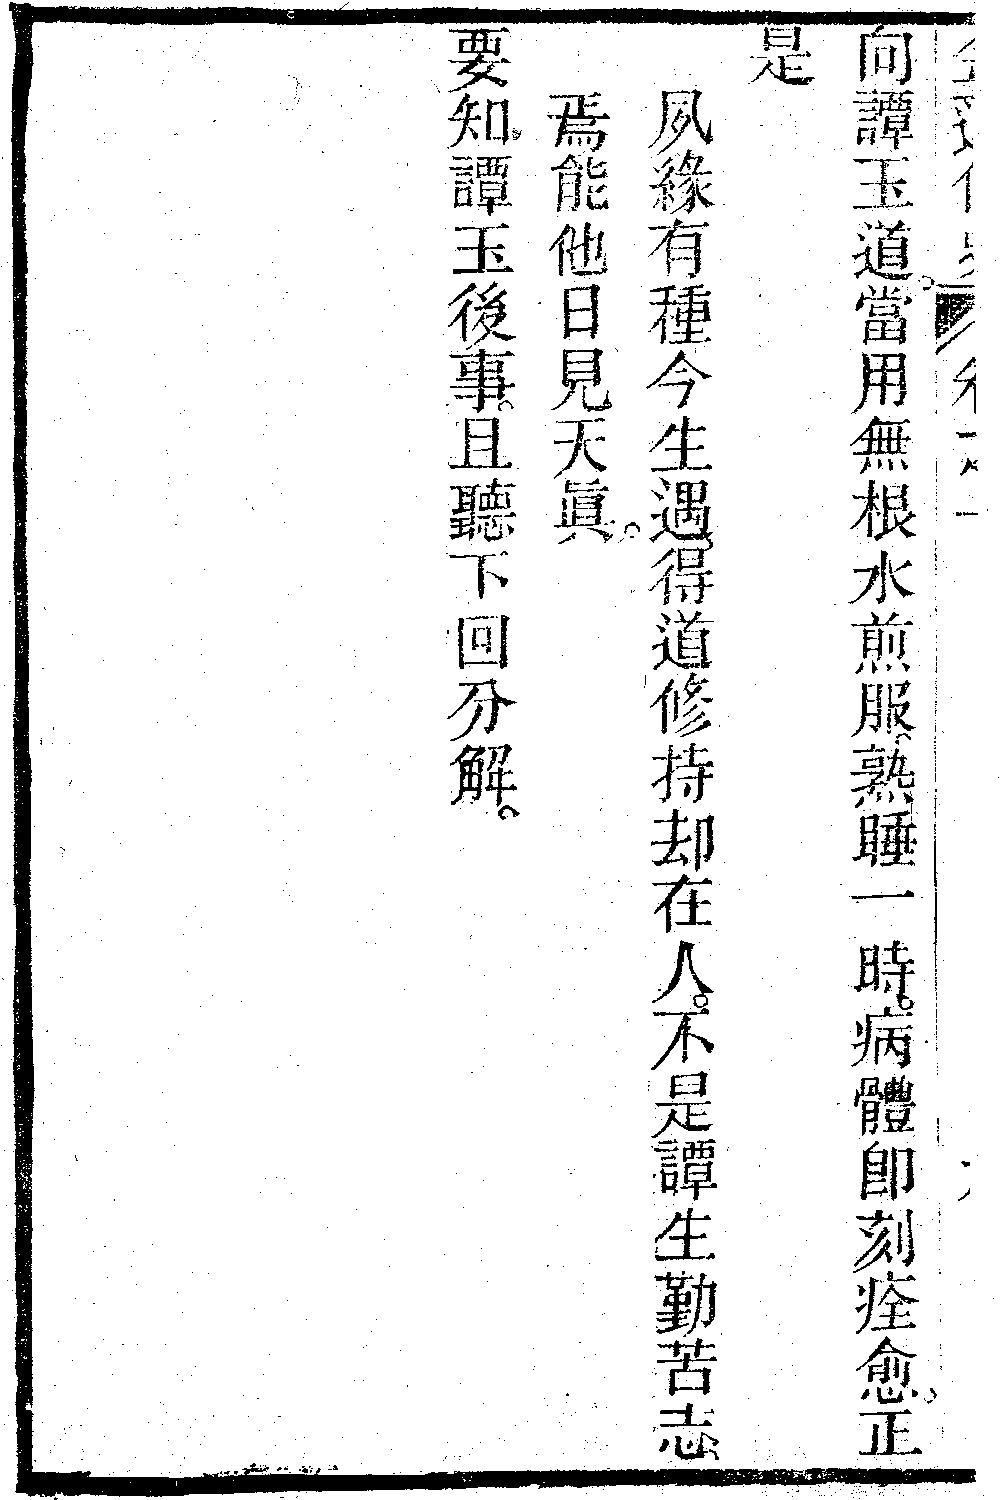 向譚玉道。當用無根水煎服。熟睡一時。病體卽刻痊愈。正
是
夙緣有種今生遇。得道修持却在人。不是譚生勤苦志。
焉能他日見天眞。
要知譚玉後事。且聽下回分解。